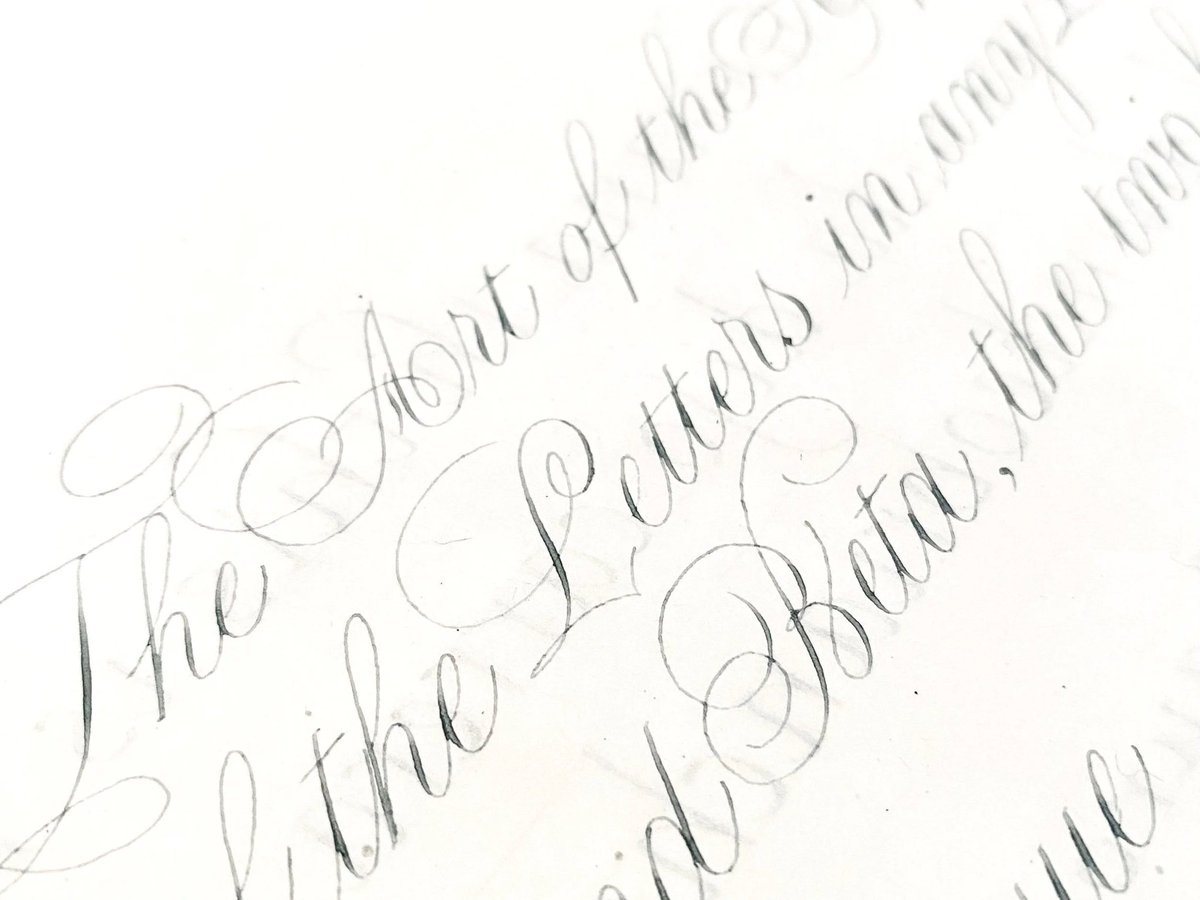 The Art of the
of the Letters in any
Beta, the two